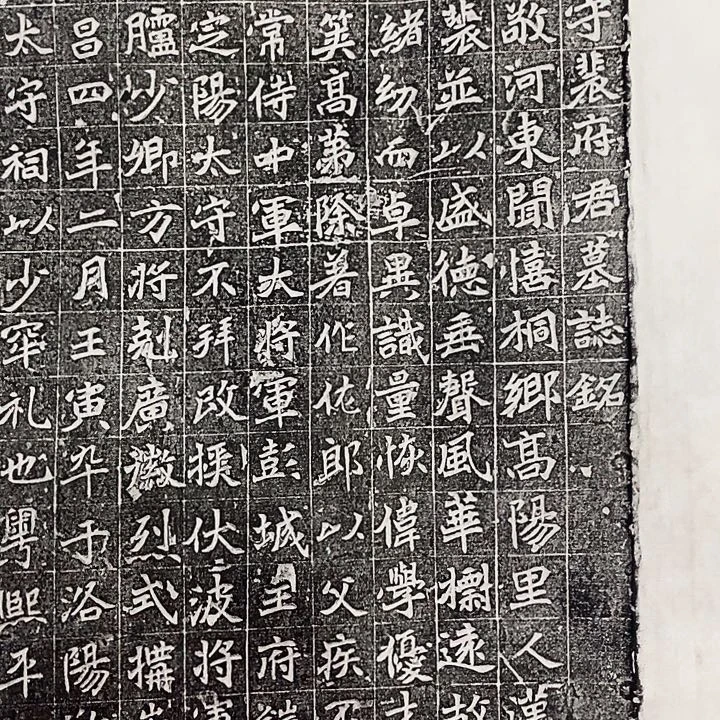 守裴府君墓誌銘
敬河東聞憘桐鄉高陽里人漢
裴並以盛德垂聲風華櫬遠故
緒幼而卓異識量恢偉學優才
筭高第除著作佐郎以父疾不
常侍中軍大將軍彭城王府
定陽太守不拜改授伏波將軍
臚少卿方將剋廣徽烈式搆
昌四年二月壬寅卒于洛陽
太守祠以少窂礼也粤熙平